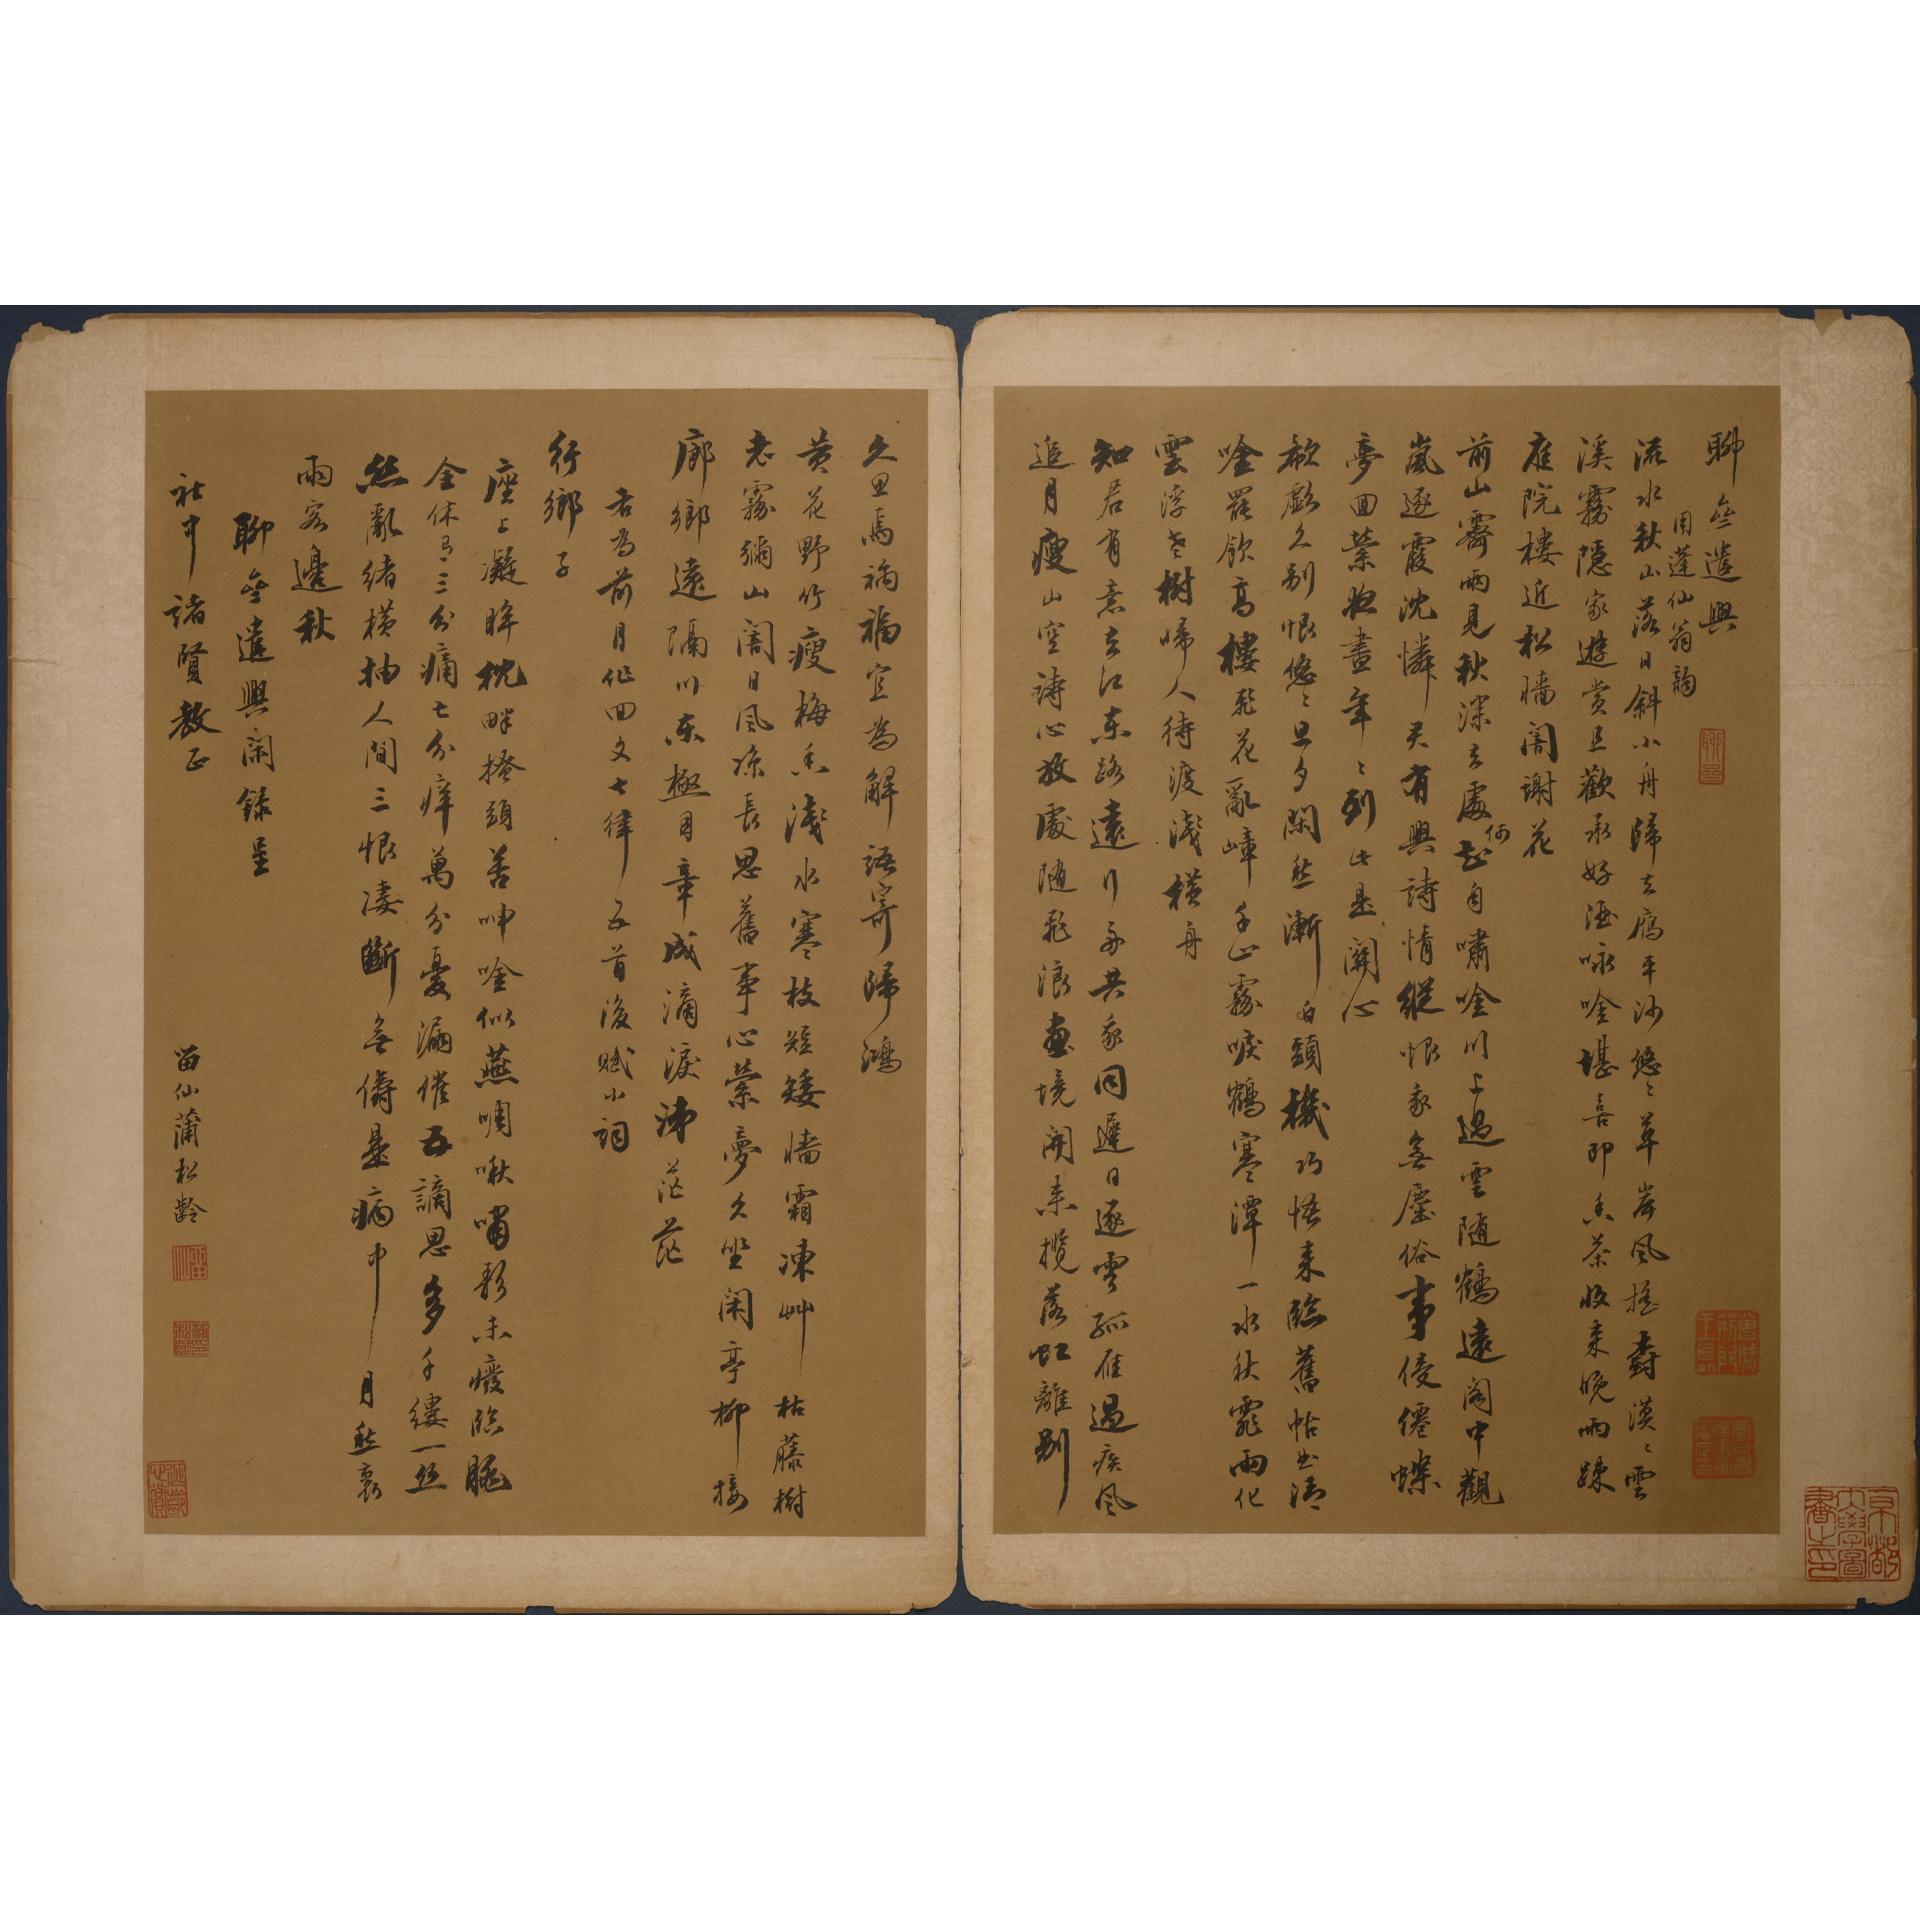 聊齋遣興
用蓬仙翁韵
流水秋山落日斜小舟歸去雁平沙悠〻草岸風搖樹漠〻雲
溪霧隱家遊賞且歡永好酒咏吟堪喜即香茶收來晚雨疎
庭院樓近松牆闇謝花
前山霽雨見秋深去處何自嘯吟川上過雲隨鶴遠閣中觀
嵐逐霞沈憐君有興詩情縱恨我無塵俗事侵僊蝶
夢回縈夜晝年〻列坐是關心
欷歔久别恨悠〻旦夕閑愁漸白頭機巧悟來臨舊帖出清
吟罷飲高樓飛花亂嶂千山霧唳鶴寒潭一水秋霏雨化
雲浮老樹啼人待渡淺橫舟
知君有意去江東路遠行舟共我同遲日逐雲孤雁過疾風
追月瘦山空詩心放處隨飛浪畫境開來攬落虹離别
久思焉禍福宜為解語寄歸鴻
黄花野竹瘦梅香淺水寒枝短矮牆霜凍艸枯藤樹
老霧彌山闇日風凉長思舊事心縈夢久坐閑亭柳接
廊鄉遠隔川東極目章成滴淚涕茫茫
右為前月作回文七律五首後賦小詞
行鄉子
座上凝眸枕畔搔頭苦呻吟似燕啁啾嘯歌未癈臨眺
全休有三分痛七分痒萬分憂漏催五謫思多千縷一絲
愁亂緒橫抽人間三恨凄斷無儔是病中月愁裏
雨客邊秋
聊齋遣興閑録呈
社中諸賢教正
留仙蒲松齡
京都
大學圖
書之印